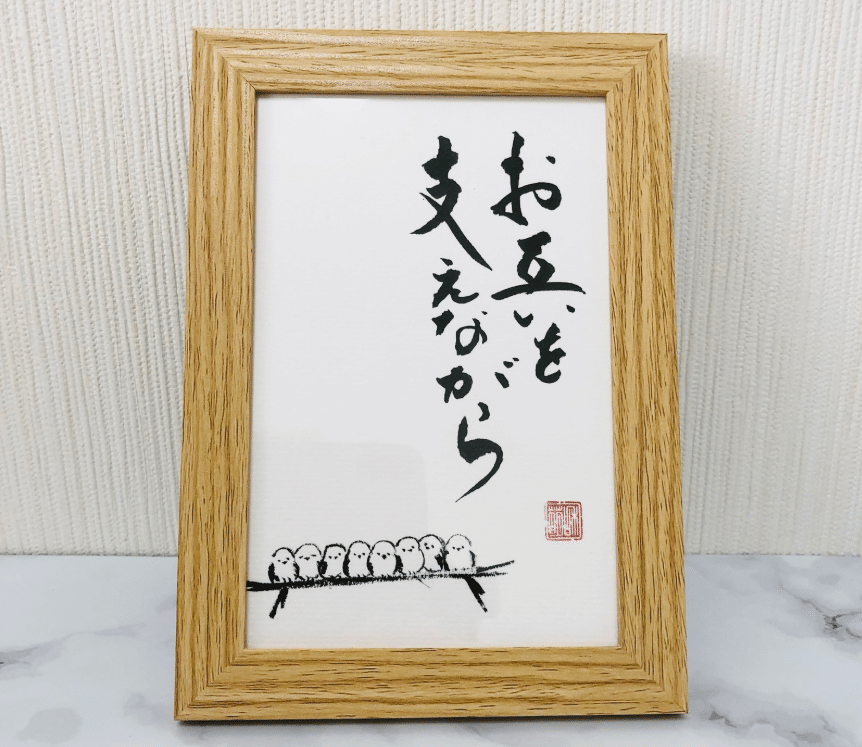 お互いを
支えながら